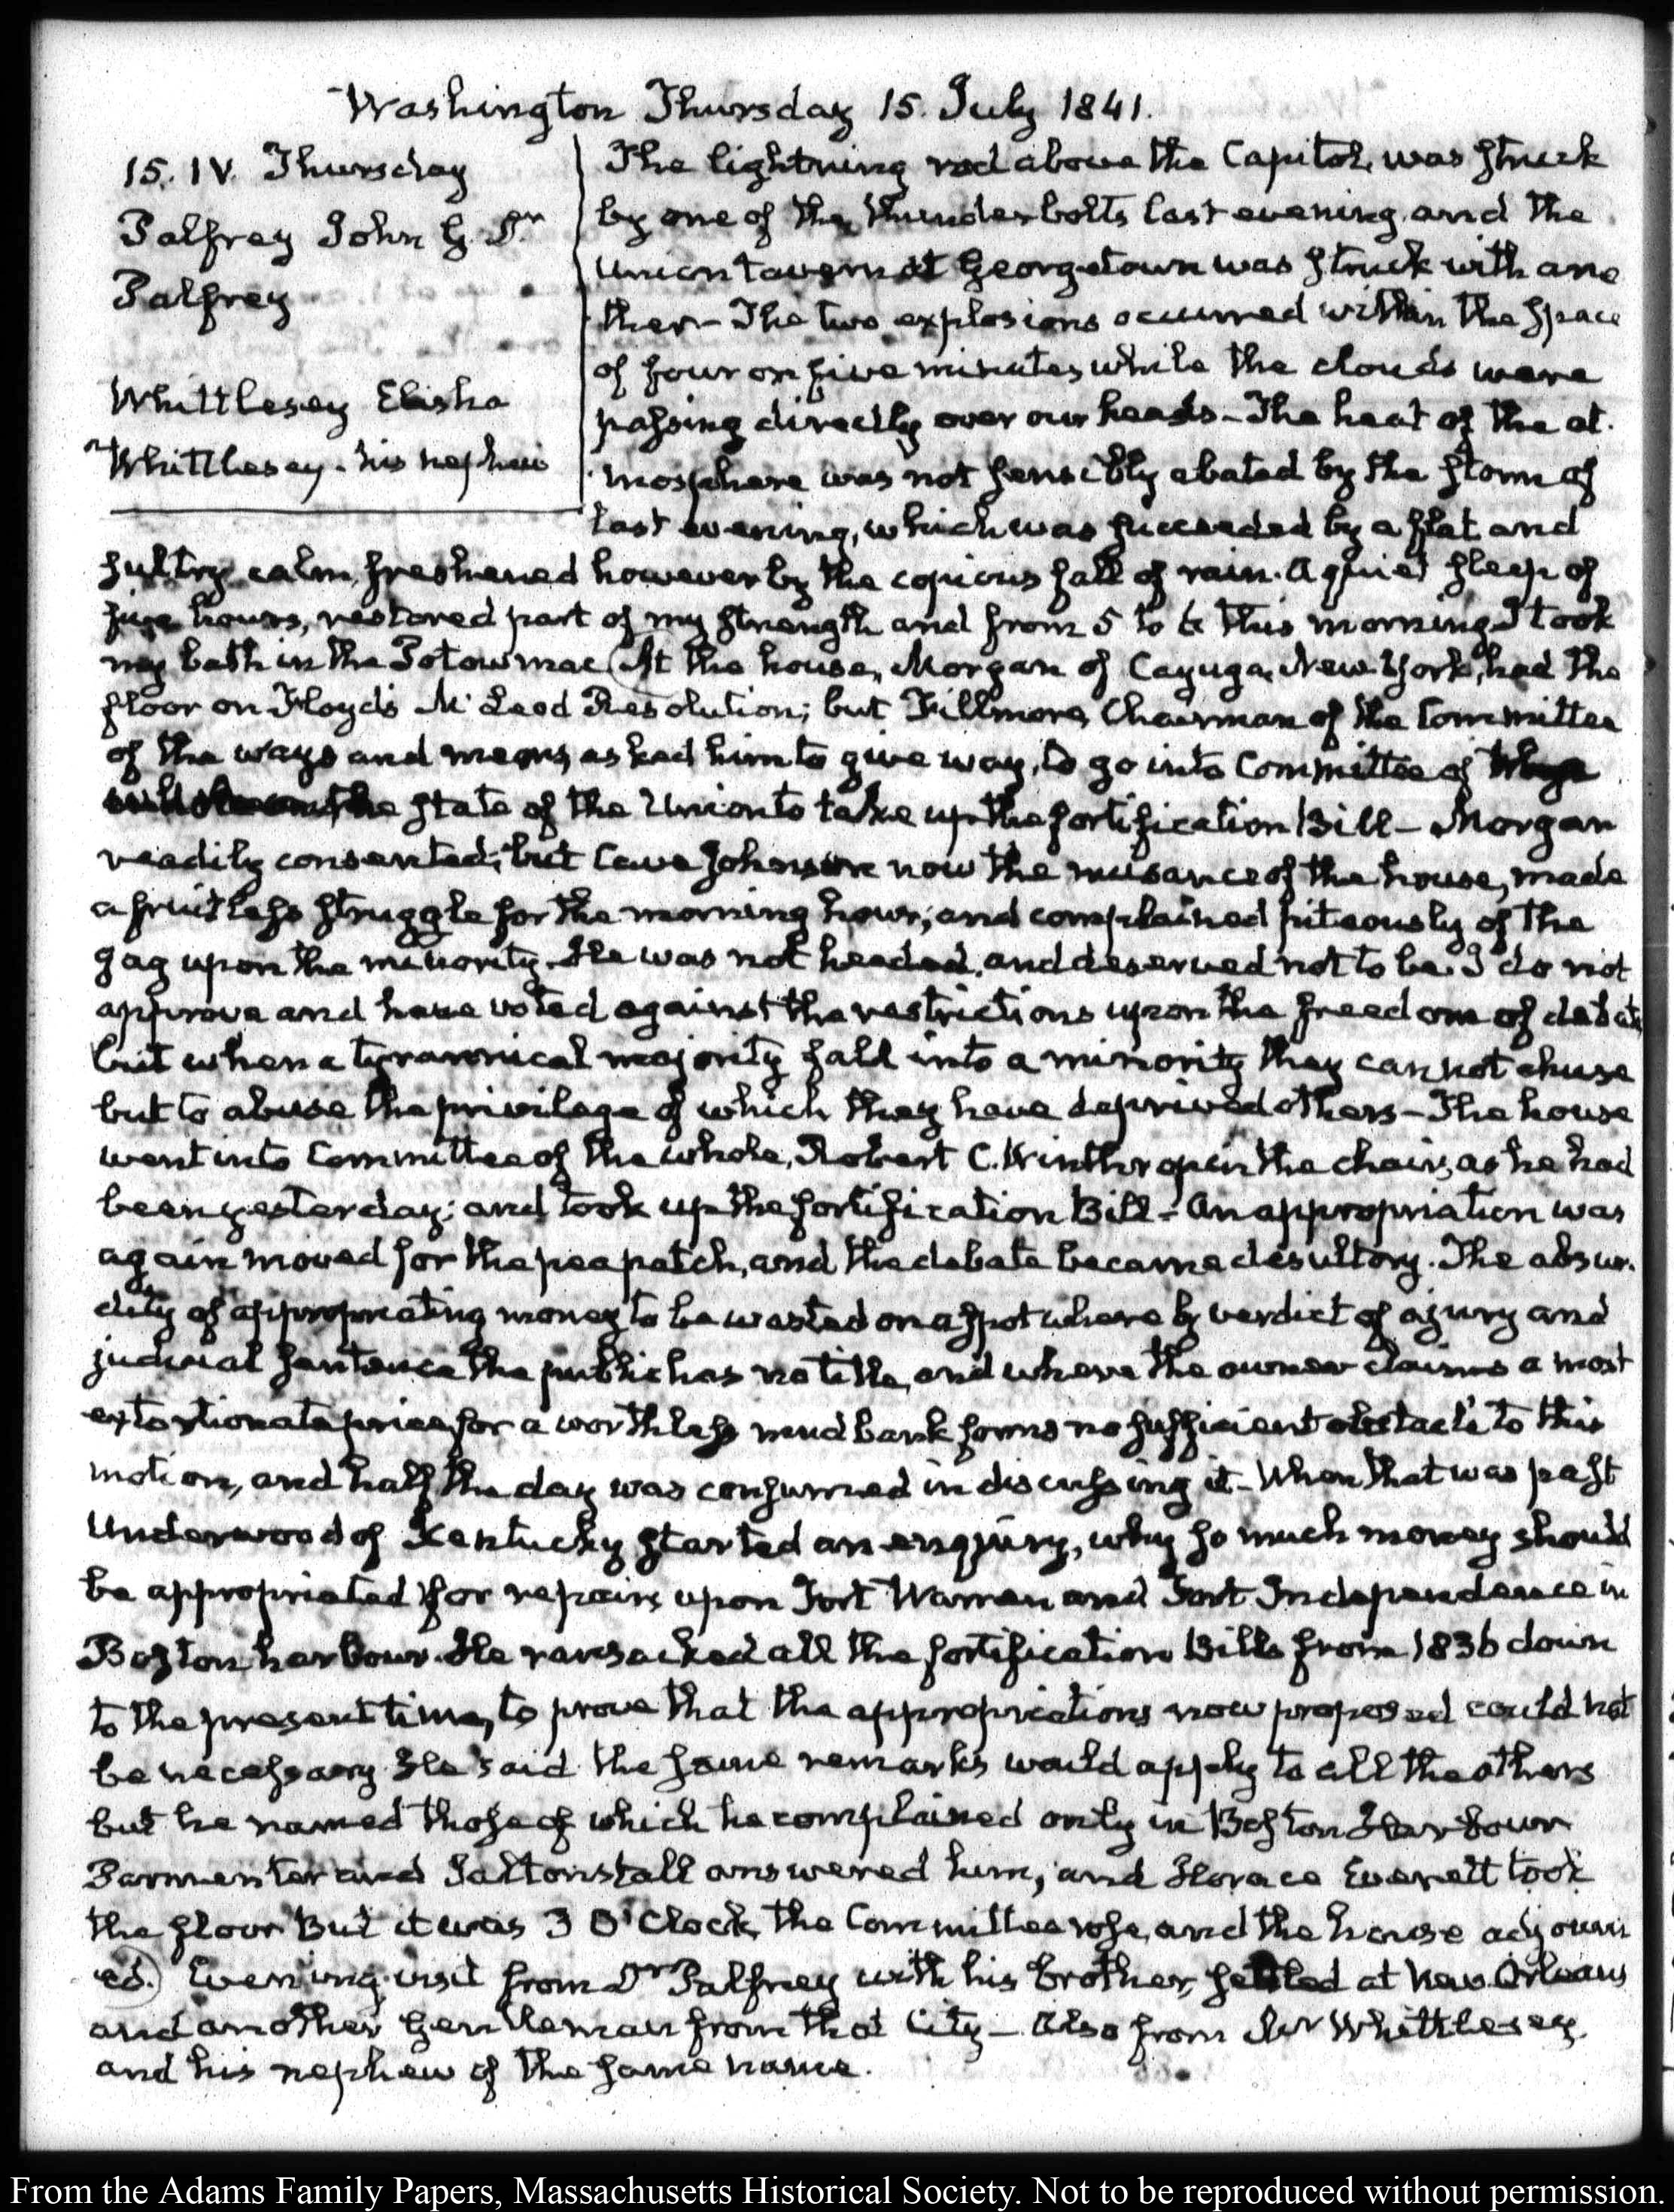 Washington Thursday 15. July 1841.
15. IV. Thursday
Palfrey John G. Dr
Palfrey
Whittlesey Elisha
Whittlesey - his nephew
The lightning rod above the Capitol, was struck
by one of the thunderbolts last evening, and the
Union tavern at Georgetown was struck with ano
ther - The two explosions occurred within the space
of four or five minutes while the clouds were
passing directly over our heads - The heat of the at-
mosphere was not sensibly abated by the storm of
last evening, which was succeeded by a flat and
sultry calm, freshened however by the copious fall of rain. A quiet sleep of
five hours, restored part of my strength and from 5 to 6 this morning I took
my bath in the Potowmac (At the house, Morgan of Cayuga, New-York, had the
floor on Floyd's McLeod Resolution; but Fillmore, Chairman of the Committee
of the ways and means, asked him to give way, to go into Committee of
the state of the Union to take up the fortification Bill - Morgan
readily consented, but Cave Johnson now the nuisance of the house, made
a fruitless struggle for the morning hour; and complained piteously of the
gag upon the minority. He was not heeded, and deserved not to be. I do not
approve and have voted against the restrictions upon the freedom of debate,
but when a tyrannical majority fall into a minority they cannot chuse
but to abuse the privilege of which they have deprived others - The house
went into Committee of the whole, Robert C. Winthrop in the chair, as he had
been yesterday; and took up the fortification Bill - An appropriation was
again moved for the pea patch, and the debate became desultory. The absur-
dity of appropriating money to be wasted on a spot where by verdict of a jury and
judicial sentence the public has no title, and where the owner claims a most
extortionate price for a worthless mud bank forms no sufficient obstacle to this
motion, and half the day was consumed in discussing it - When that was past
Underwood of Kentucky started an enquiry, why so much money should
be appropriated for repairs upon Fort Warren and Fort Independence in
Boston harbour. He ransacked all the fortification Bills from 1836 down
to the present time, to prove that the appropriations now proposed could not
be necessary. He said the same remarks would apply to all the others
but he named those of which he complained only in Boston Harbour
Parmenter and Saltonstall answered him, and Horace Everett took
the floor But it was 3 O'Clock, the Committee rose, and the house adjourn
ed.) Evening visit from Dr Palfrey with his brother, settled at New Orleans
and another Gentleman from that City - Also from Mr Whittlesey
and his nephew of the same name.
From the Adams Family Papers, Massachusetts Historical Society. Not to be reproduced without permission.